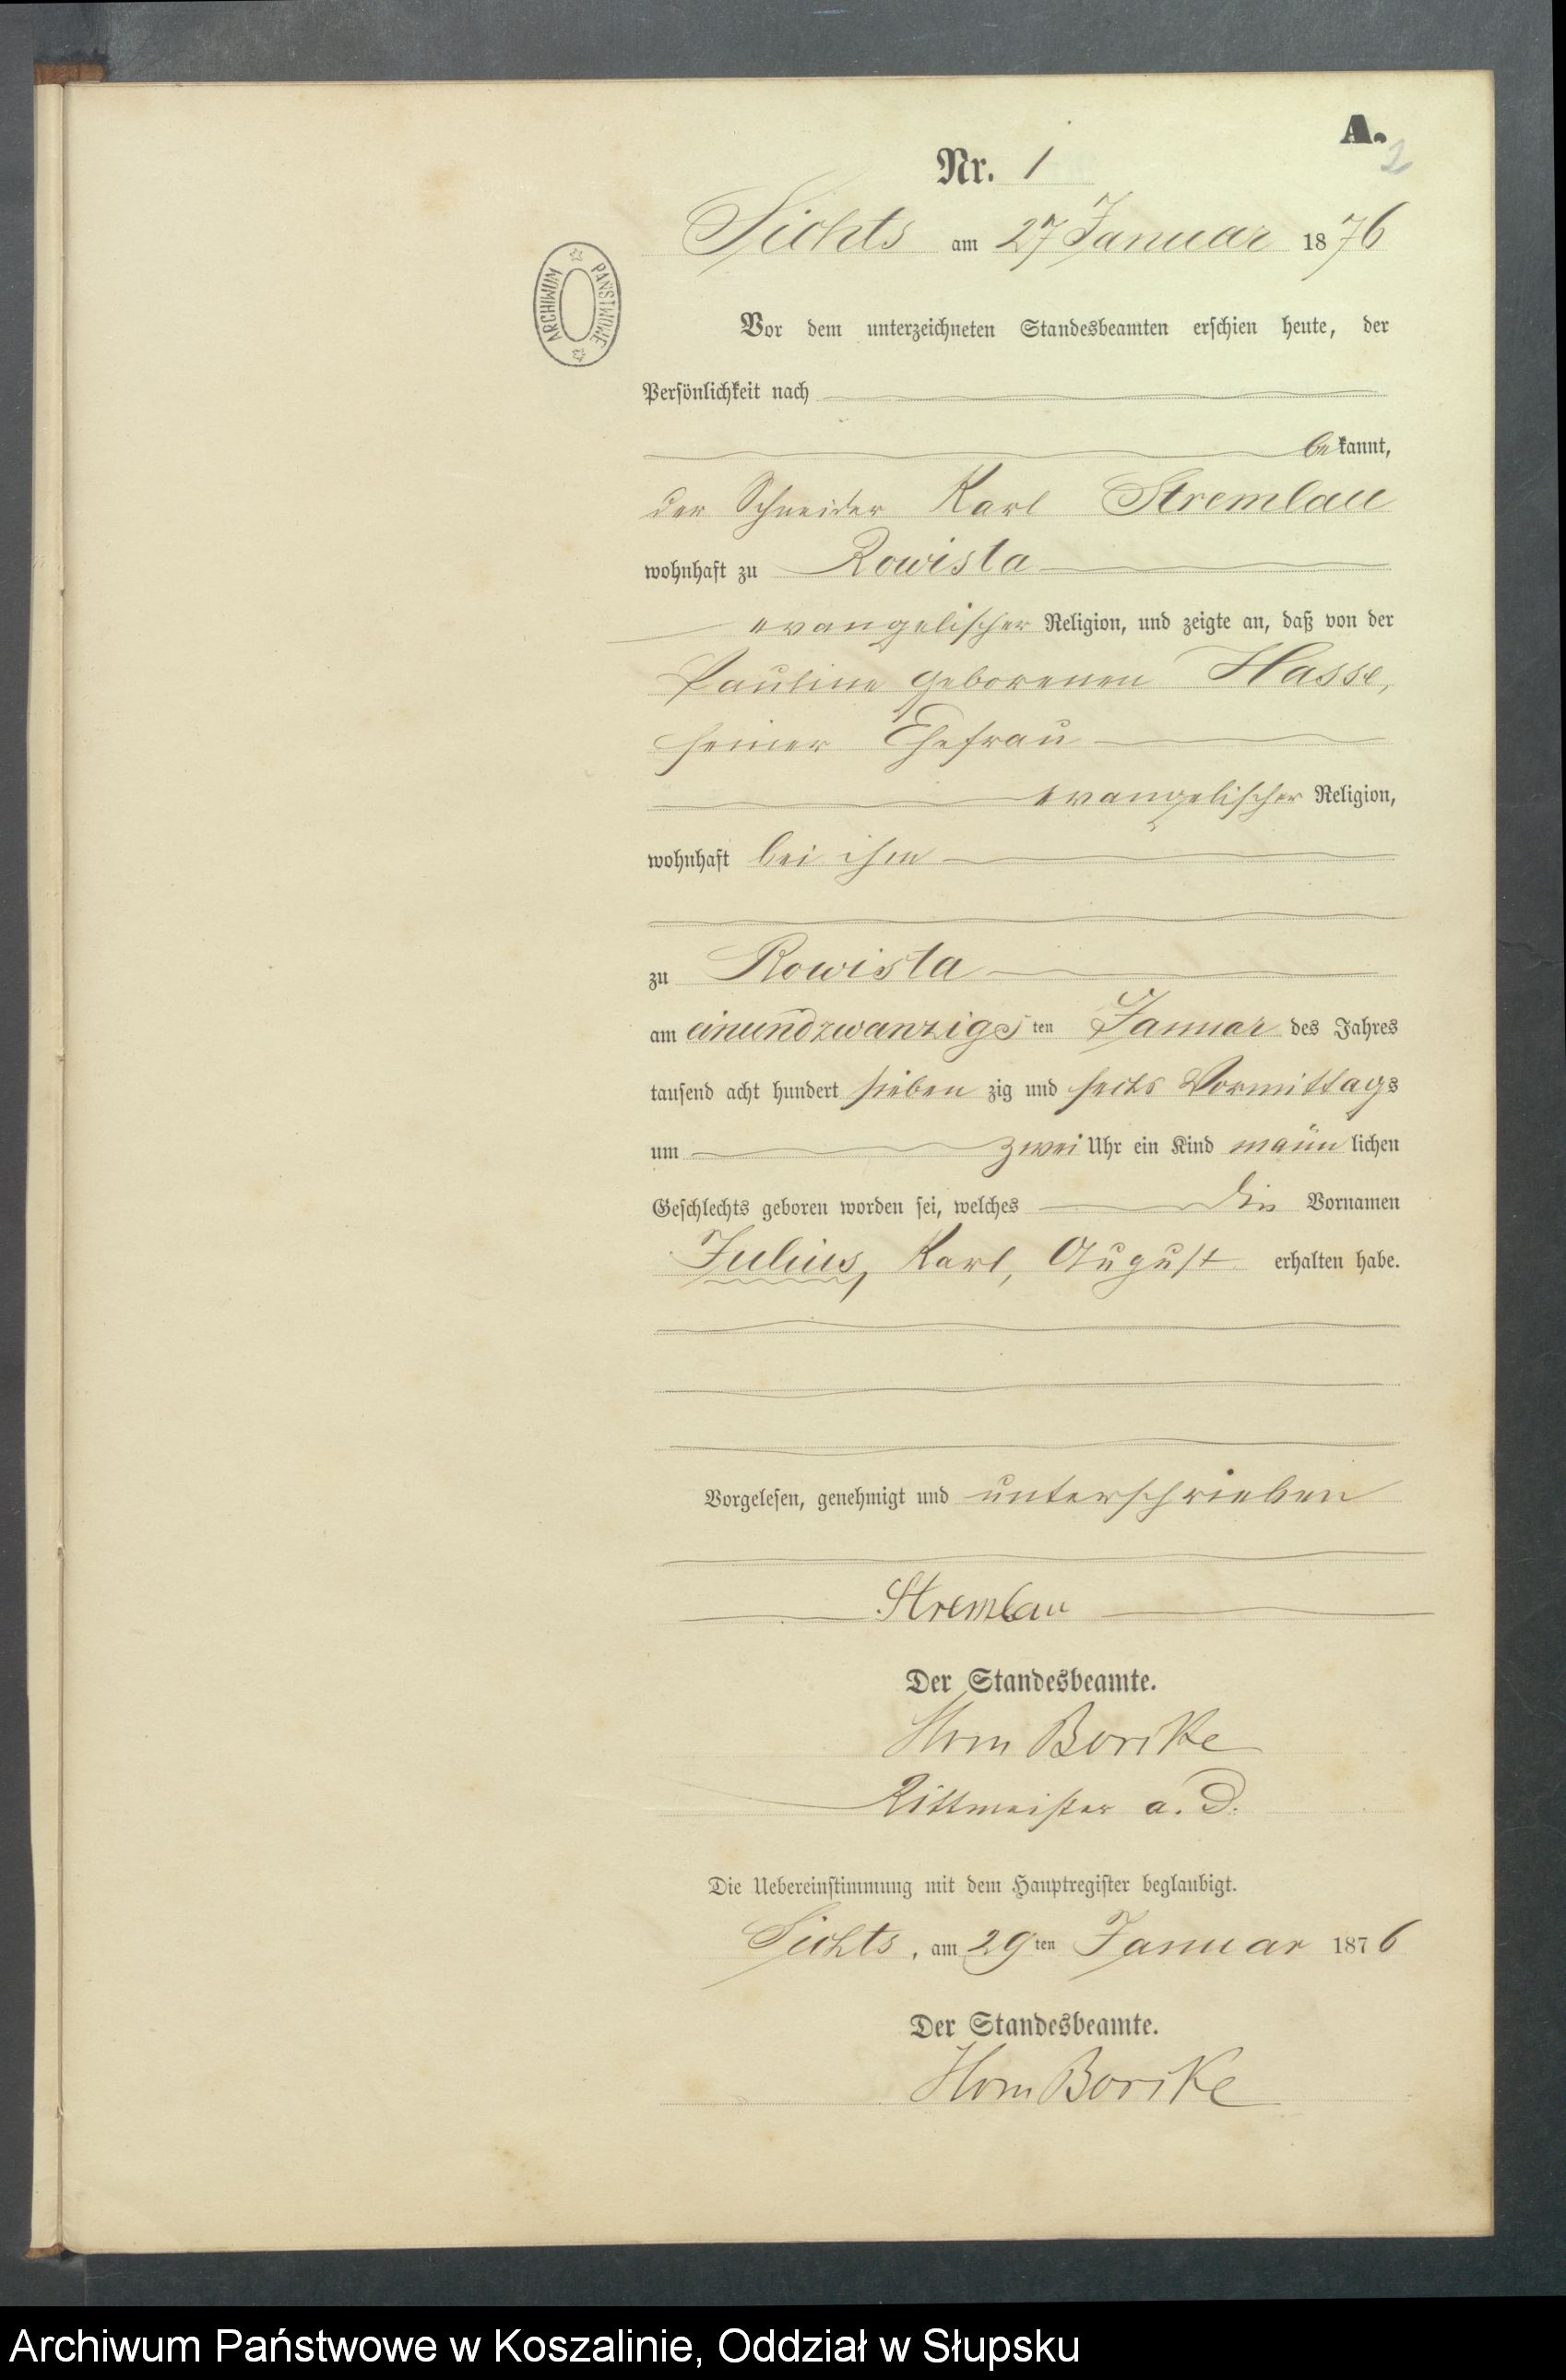 A.
2
Nr. 1
Sichts am 27 Januar 1876
ARCHIWUM PAŃSTWOWE
Vor dem unterzeichneten Standesbeamten erschien heute, der
Persönlichkeit nach
bekannt,
der Schneider Karl Stremlau
wohnhaft zu Rowista
evangelischer Religion, und zeigte an, daß von der
Pauline geborenen Hasse,
seiner Ehefrau
evangelischer Religion,
wohnhaft bei ihm
zu Rowista
am einundzwanzigsten Januar des Jahres
tausend acht hundert sieben zig und sechs Vormittags
um zwei Uhr ein Kind männlichen
Geschlechts geboren worden sei, welches die Vornamen
Julius, Karl, August erhalten habe.
Vorgelesen, genehmigt und unterschrieben
Stremlau
Der Standesbeamte.
Rittmeister a. D.
Die Uebereinstimmung mit dem Hauptregister beglaubigt.
Sichts, am 29ten Januar 1876
Der Standesbeamte.
Archiwum Państwowe w Koszalinie, Oddział w Słupsku